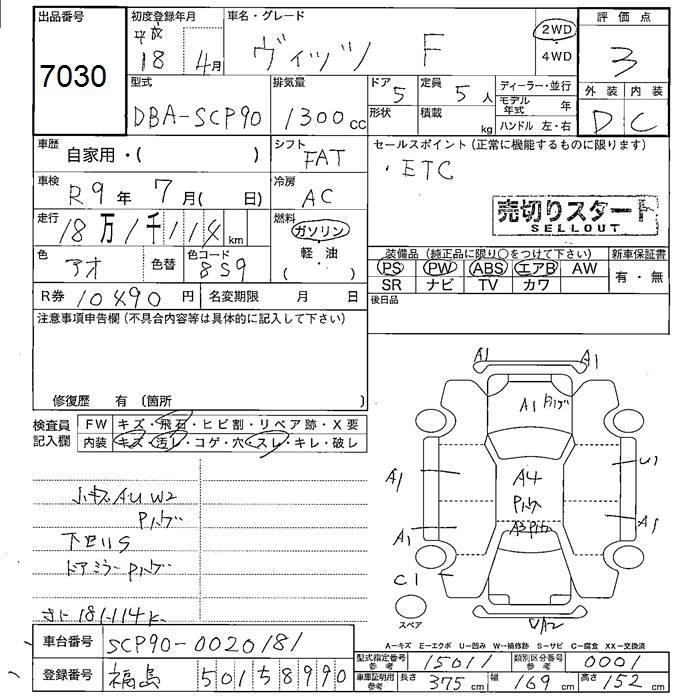 出品番号
7030
初度登録年月
平成
18 4月
車名・グレード
ヴィッツ F
2WD
4WD
評価点
3
外装 内装
D C
型式
DBA-SCP90
排気量
1300cc
ドア
5
形状
定員
5人
積載
kg
ディーラー・並行
モデル年式 年
ハンドル 左・右
車歴
自家用・( )
シフト
FAT
セールスポイント(正常に機能するものに限ります)
・ETC
売切りスタート
SELLOUT
車検
R9年 7月( 日)
冷房
AC
走行
18万1千114km
燃料
ガソリン
軽・油
( )
色
アオ
色替
色コード
8S9
装備品(純正品に限り○をつけて下さい)
PS PW ABS エアB AW
SR ナビ TV カワ
新車保証書
有・無
R券 10490円
名変期限 月 日
後日品
注意事項申告欄(不具合内容等は具体的に記入して下さい)
修復歴 有(箇所 )
検査員記入欄
FW キズ・飛石・ヒビ割・リペア跡・X要
内装 キズ・汚レ・コゲ・穴・スレ・キレ・破レ
小キズAUW2
Pハゲ
下回りS
ドアミラーPハゲ
181,114K
A1 A1
A1 Pハゲ
A1 A4 U1
Pハゲ
A1 A3Pハゲ A1
C1
スペア
A2
A=キズ E=エクボ U=凹み W=補修跡 S=サビ C=腐食 XX=交換済
車台番号 SCP90-0020181
登録番号 福島 501 5 8990
型式指定番号 参考 15011
類別区分番号 参考 0001
車庫証明用 参考 長さ 375cm 幅 169cm 高さ 152cm